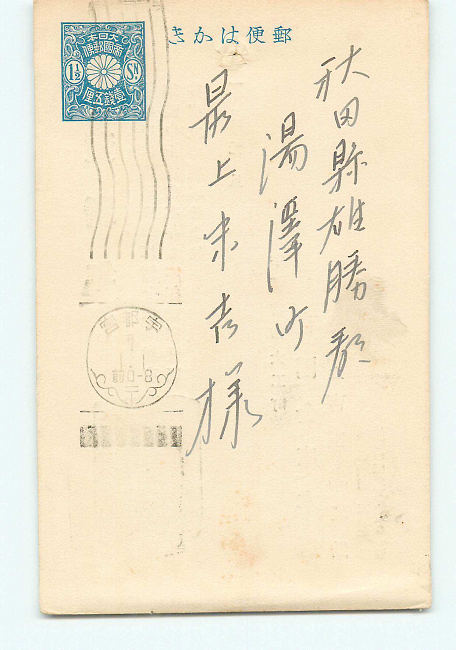 郵便はかき
大日本
帝國郵便
1½ Sn
壹錢五厘
秋田縣雄勝郡
湯澤町
最上米吉様
宇都宮
7
1.1
前0-8